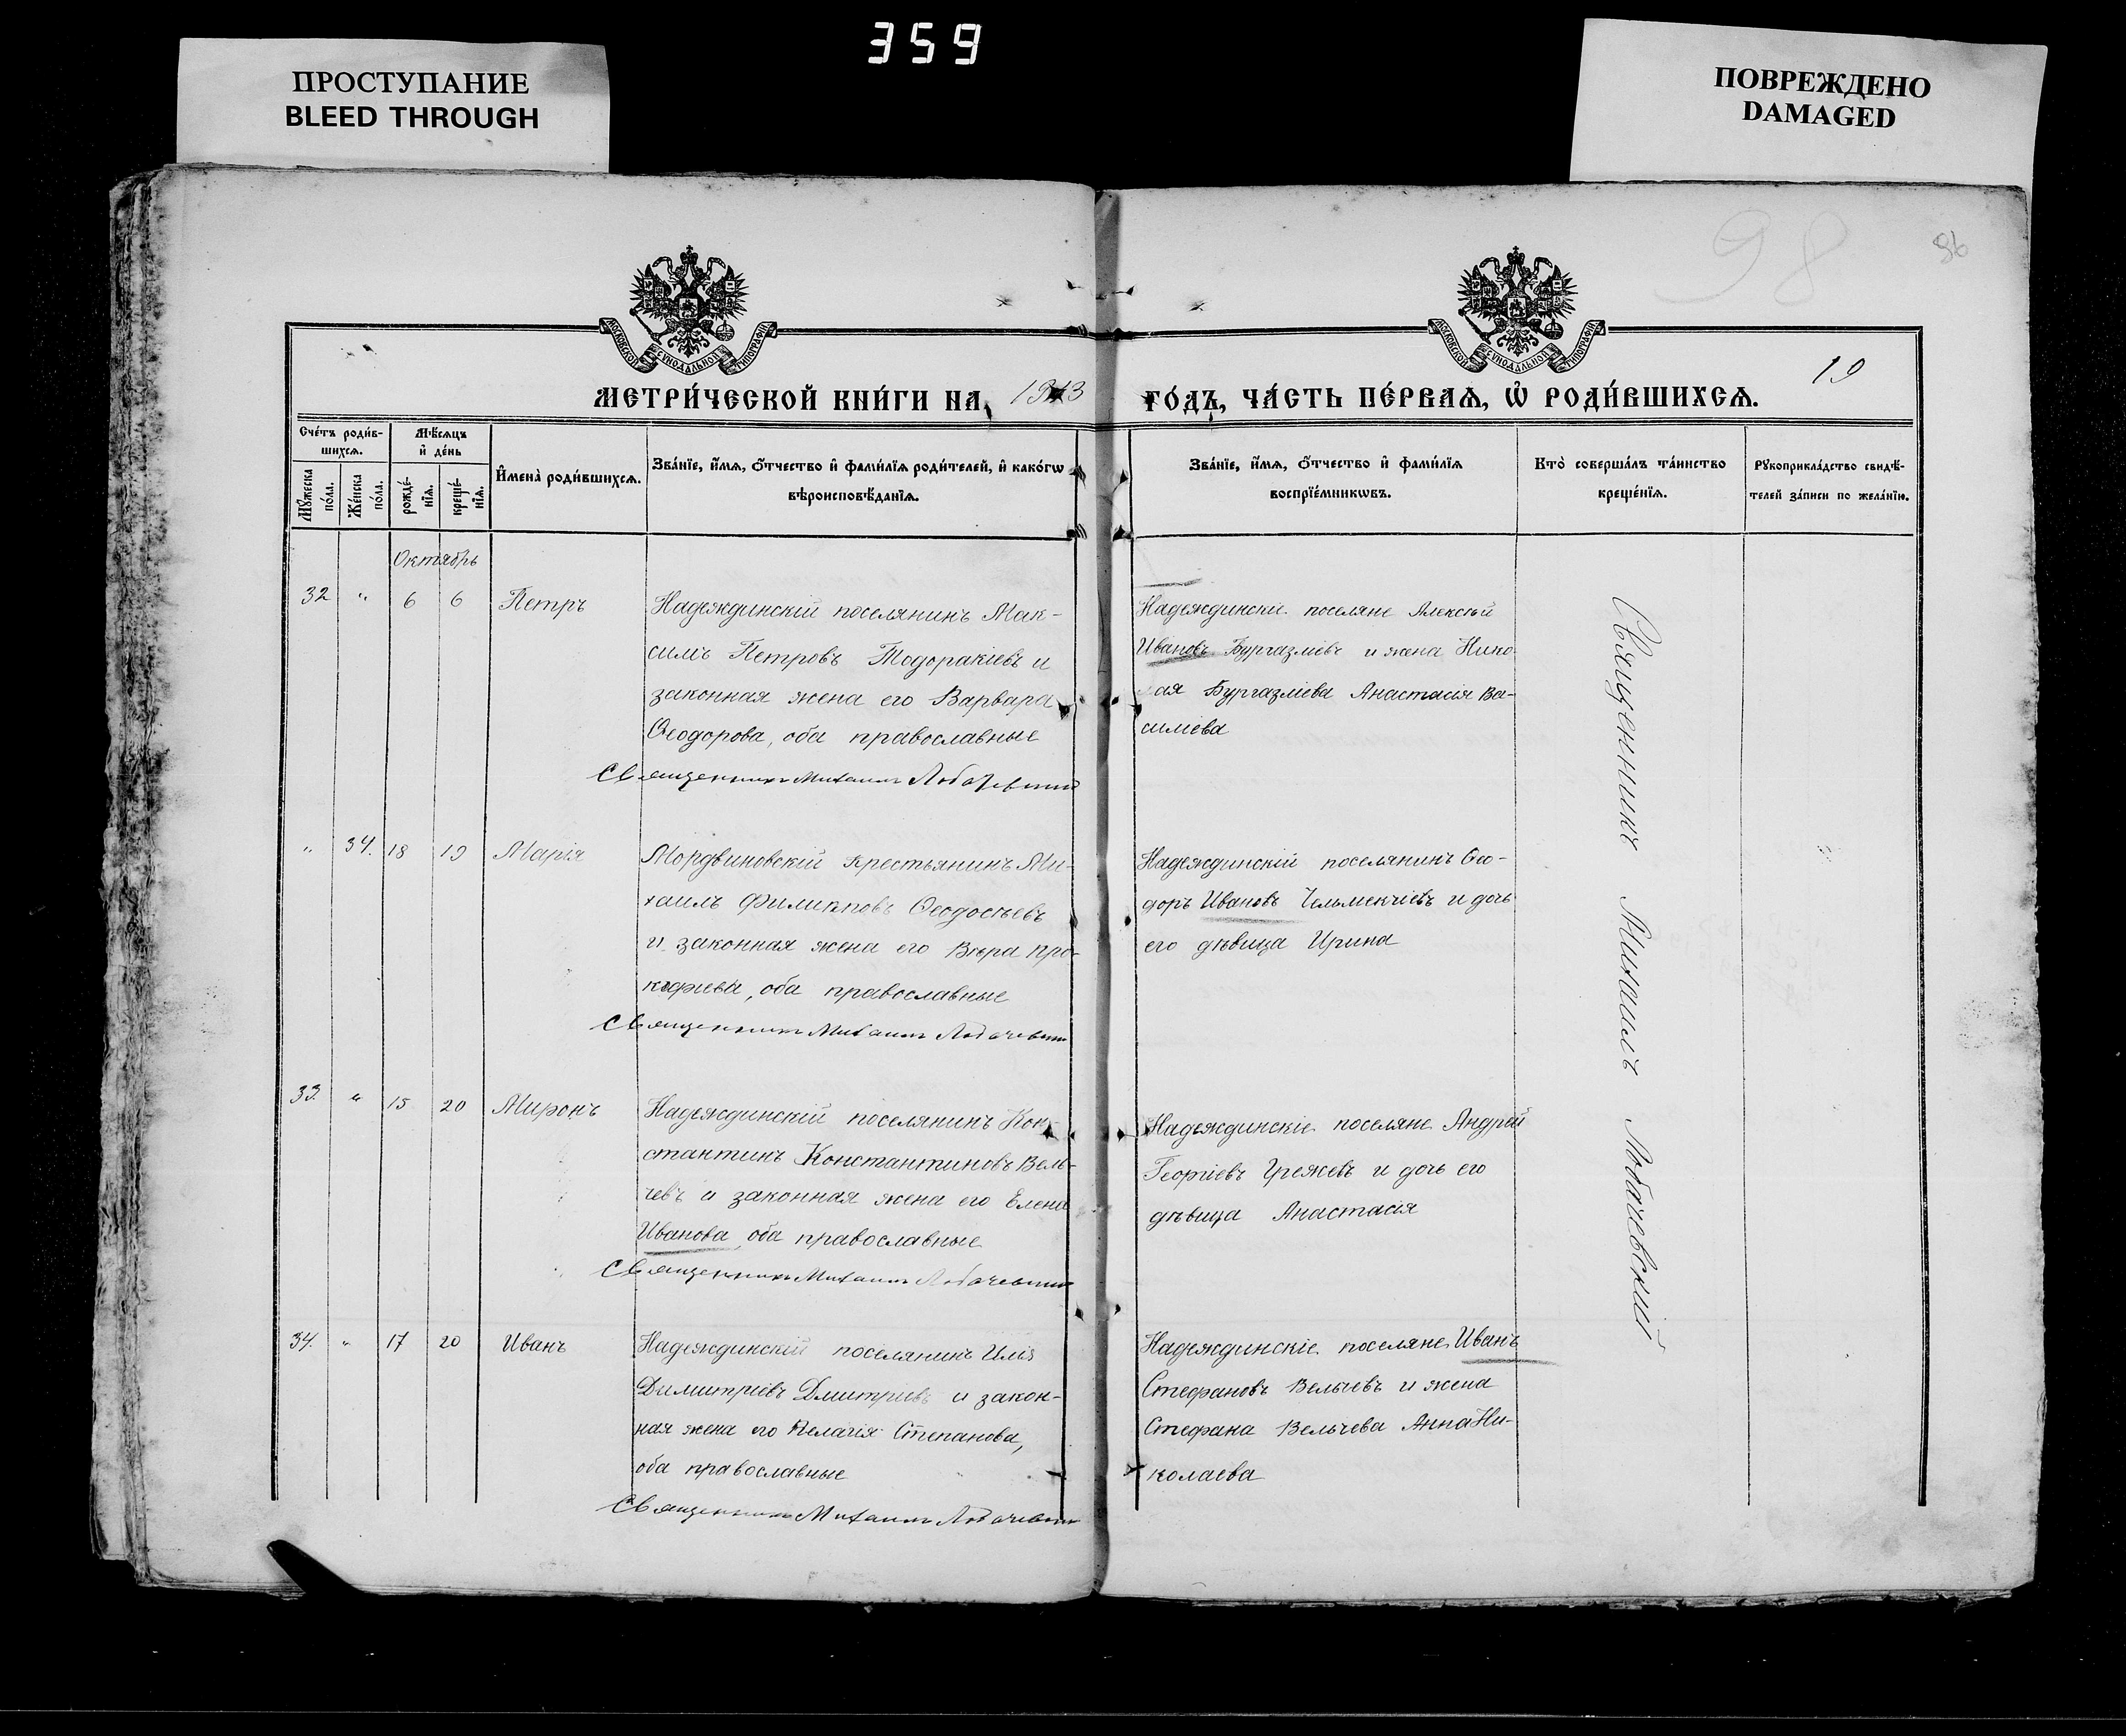 359
ПРОСТУПАНИЕ
BLEED THROUGH
ПОВРЕЖДЕНО
DAMAGED
98
96
МОСКОВСКОЙ СУНОДАЛЬНОЙ ТИПОГРАФІИ
МОСКОВСКОЙ СУНОДАЛЬНОЙ ТИПОГРАФІИ
19
МЕТРИ́ЧЕСКОЙ КНИ́ГИ НА 1913
ГО́ДЪ, ЧА́СТЬ ПЕ́РВАѦ, Ѡ РОДИ́ВШИХСѦ.
Сче́тъ роди́в-
шихсѧ.
Мѣ́сѧцъ
и де́нь
Мꙋ́жеска
по́ла.
Же́нска
по́ла.
рожде́-
нїѧ.
креще́-
нїѧ.
Имена̀ роди́вшихсѧ.
Зва́нїе, и́мѧ, о́тчество и фами́лїѧ роди́телей, и како́гѡ
вѣроисповѣ́данїѧ.
Зва́нїе, и́мѧ, о́тчество и фами́лїѧ
воспрїе́мникѡвъ.
Кто̀ соверша́лъ та́инство
креще́нїѧ.
Рꙋкоприкла́дство свидѣ́-
телей за́писи по жела́нїю.
Октябрь
32 " 6 6 Петръ
Надеждинскій поселянинъ Мак-
симъ Петровъ Тодоракіевъ и
законная жена его Варвара
Ѳеодорова, оба православные
Священникъ Михаилъ Лобачевскій
Надеждинскі поселяне Алексѣй
Ивановъ Бургазліевъ и жена Нико
ая Бургазліева Анастасія Ва-
силіева
" 34. 18 19 Марія
Мордвиновскій крестьянинъ Ми-
хаилъ Филипповъ Ѳеодосьевъ
и законная жена его Вѣра Про-
кофіева, оба православные
Священникъ Михаилъ Лобачевскій
Надеждинскій поселянинъ Ѳео-
доръ Ивановъ Чельмекчіевъ и дочь
его дѣвица Ирина
33. " 15 20 Миронъ
Надеждинскій поселянинъ Кон-
стантинъ Константиновъ Вель-
чевъ и законная жена его Елена
Иванова, оба православные
Священникъ Михаилъ Лобачевскій
Надеждинскіе поселяне Андрей
Георгіевъ и дочь его
дѣвица Анастасія
34. " 17 20 Иванъ
Надеждинскій поселянинъ Илья
Димитріевъ Дмитріевъ и закон-
ная жена его Пелагія Степанова,
оба православные
Священникъ Михаилъ Лобачевскій
Надеждинскіе поселяне Иванъ
Стефановъ Вельчевъ и жена
Стефана Вельчева Анна Ни-
колаева
Священникъ Михаилъ Лобачевскій